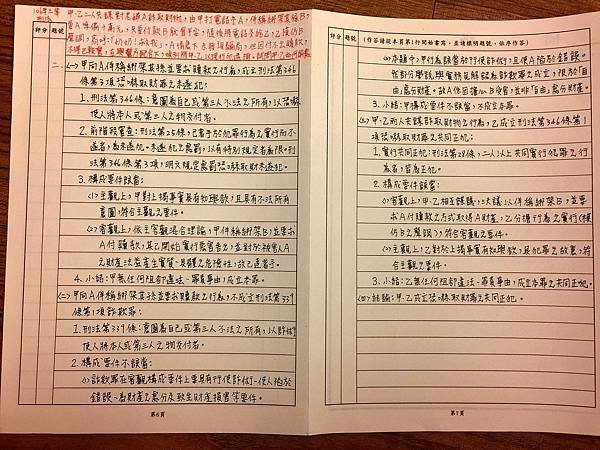 106年三等
刑法
甲、乙二人共謀對老婦A詐取財物,由甲打電話予A,佯稱綁架其孫B,
要A準備十萬元
評分
題號
二、
(一)甲向A佯稱綁架其孫並要求贖款之行為,成立刑法第346
條第3項恐嚇取財罪之未遂犯
1. 刑法第346條:意圖為自己或第三人不法之所有,以恐嚇
使人將本人或第三人之物交付者。
2. 前階段審查:刑法第25條:已著手於犯罪行為之實行而不
遂者,為未遂犯。未遂犯之處罰,以有特別規定者為限。刑
法第346條第3項,明文規定處罰恐嚇取財未遂犯。
3. 構成要件該當:
(1)主觀上,甲對上揭事實具有知與欲,且具有不法所有
意圖,符合主觀之要件。
(2)客觀上,依主客觀混合理論,甲佯稱綁架B,並要求
A付贖款,其已開始實行惡害告之,並對於被害人A
之財產法益產生實質、具體之危險性,故已達著手。
4. 小結:甲無任何阻卻違法、罪責事由,成立本罪。
(二)甲向A佯稱綁架其孫並要求贖款之行為,不成立刑法第339
條第1項詐欺罪:
1. 刑法第339條:意圖為自己或第三人不法之所有,以詐術
使人將本人或第三人之物交付者。
2. 構成要件不該當:
(1)詐欺罪在客觀構成要件上要具有行使詐術、使人陷於
錯誤、為財產之處分及致生財產損害等要件。
第6頁
評分
題號
(作答請從本頁第1行開始書寫,並請標明題號,依序作答)
(2)本題中,甲行為該當於行使詐術,且使A陷於錯誤。
惟部分學說與實務見解認為詐欺罪之成立,限於「自
由」處分財產。故A係因擔心B安危,並非「自由」處分財產。
3. 小結:甲構成要件不該當,不成立本罪。
(三)甲、乙兩人共謀詐取財物之行為,乙成立刑法第346條第1
項恐嚇取財罪之共同正犯:
1. 實行共同正犯:刑法第28條,二人以上共同實行犯罪之行
為者,皆為正犯。
2. 構成要件該當:
(1)客觀上,甲、乙相互謀議,決議以佯稱綁架B,並要
求A付贖款方式取得A財產,乙分擔行為之實行(模
仿B之聲調),符合客觀之要件。
(2)主觀上,乙對於上揭事實有知與欲,具犯罪之故意,符
合主觀之要件。
3. 小結:乙無任何阻卻違法、罪責事由,成立本罪之共同正犯。
(四)結論:甲、乙成立恐嚇取財罪之共同正犯。
第7頁